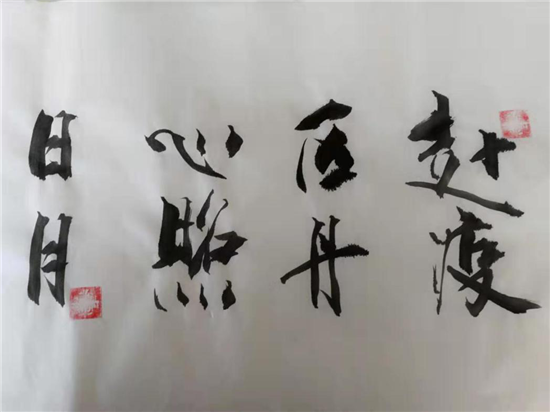 赴疫
丹
心照
日月